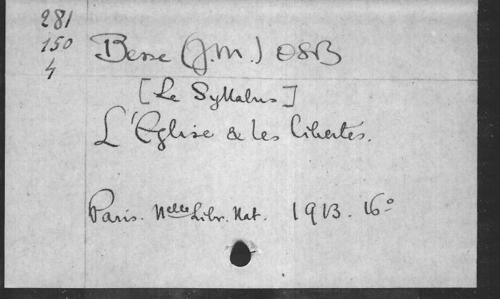 281
150
4
Besse (J.M.) OSB
[Le Syllabus]
L'Eglise & les libertés.
Paris. Nelle Libr. Nat. 1913. 16°